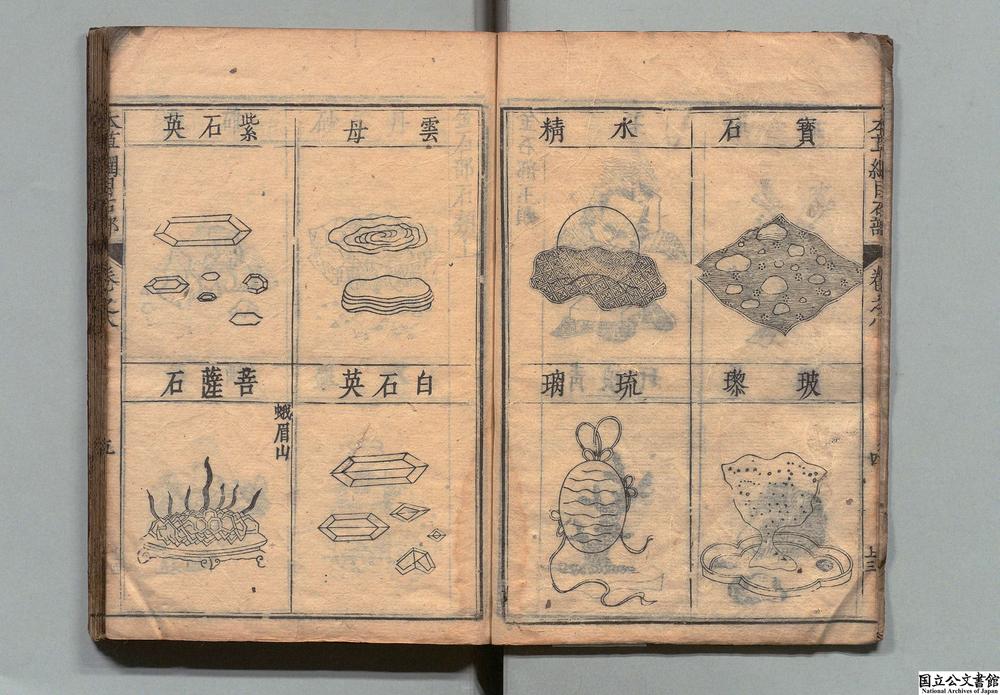 本草綱目石部
卷之八
寶石
水精
玻瓈
琉璃
雲母
紫石英
白石英
菩薩石
峨眉山
本草綱目石部
卷之八
国立公文書館
National Archives of Japan